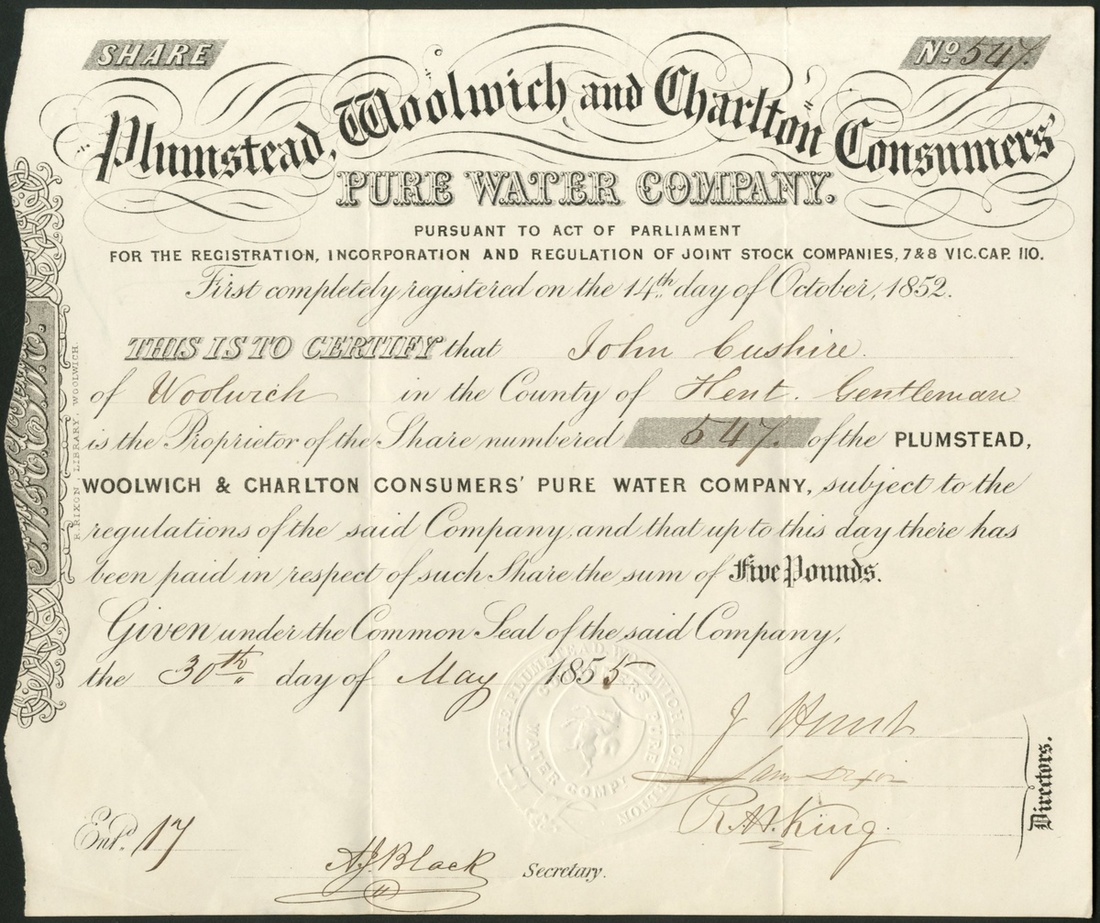 SHARE
No 547.
Plumstead, Woolwich and Charlton Consumers'
PURE WATER COMPANY.
PURSUANT TO ACT OF PARLIAMENT
FOR THE REGISTRATION, INCORPORATION AND REGULATION OF JOINT STOCK COMPANIES, 7 & 8 VIC. CAP. 110.
First completely registered on the 14th day of October, 1852.
THIS IS TO CERTIFY that John Cushire.
of Woolwich in the County of Kent. Gentleman
is the Proprietor of the Share numbered 547. of the PLUMSTEAD,
WOOLWICH & CHARLTON CONSUMERS' PURE WATER COMPANY, subject to the
regulations of the said Company, and that up to this day there has
been paid in respect of such Share the sum of Five Pounds.
Given under the Common Seal of the said Company,
the 30th day of May 1855
J Hunt
Sam Dixon
R.A. King.
Directors.
Entd. 17
A.J. Black Secretary.
R. RIXON, LIBRARY, WOOLWICH.
THE PLUMSTEAD, WOOLWICH & CHARLTON
CONSUMERS PURE
WATER COMPY